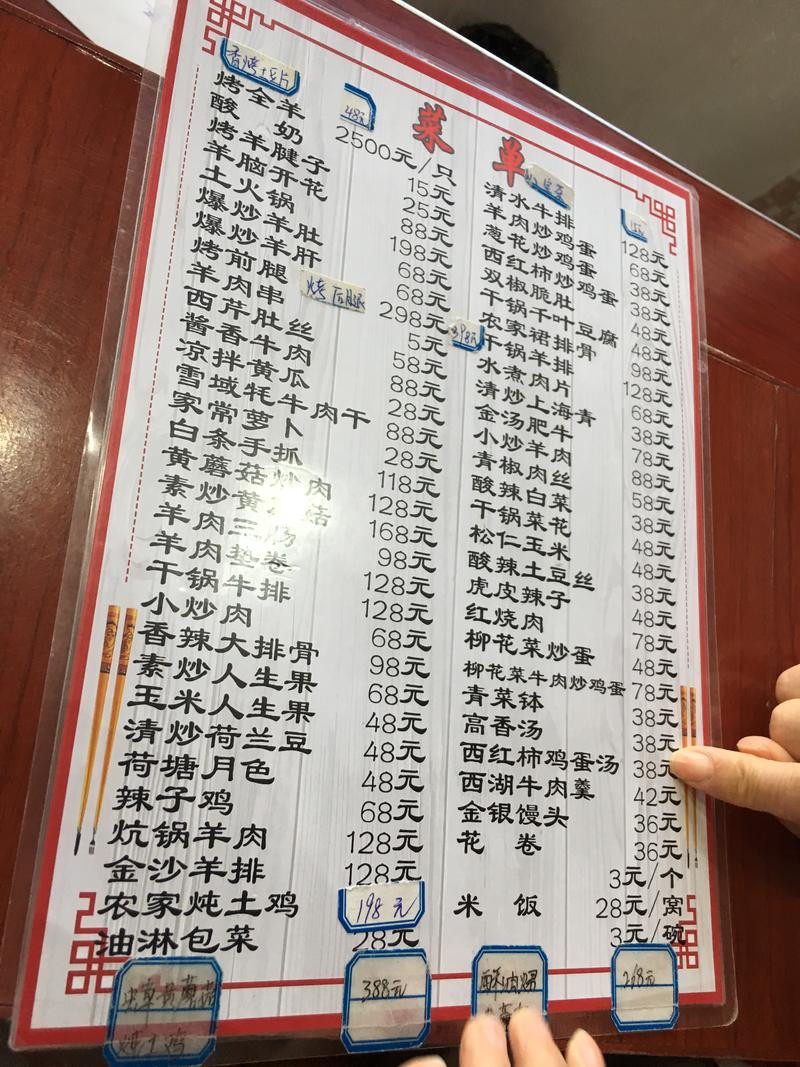 香烤土豆片 48元
菜单
烤全羊 2500元/只
酸奶 15元
烤羊腱子 25元
羊脑开花 88元
土火锅 198元
爆炒羊肚 68元
爆炒羊肝 68元
烤前腿 298元
烤后腿 398元
羊肉串 5元
西芹肚丝 58元
酱香牛肉 88元
凉拌黄瓜 28元
雪域牦牛肉干 88元
家常萝卜 28元
白条手抓 118元
黄蘑菇炒肉 128元
素炒黄蘑菇 168元
羊肉三汤 98元
羊肉垫卷 128元
干锅牛排 128元
小炒肉 68元
香辣大排骨 98元
素炒人生果 68元
玉米人生果 48元
清炒荷兰豆 48元
荷塘月色 48元
辣子鸡 68元
炕锅羊肉 128元
金沙羊排 128元
农家炖土鸡 198元
油淋包菜 28元
虫草黄蘑菇
炖土鸡 388元
清水牛排 128元
羊肉炒鸡蛋 68元
葱花炒鸡蛋 38元
西红柿炒鸡蛋 38元
双椒脆肚 48元
干锅千叶豆腐 48元
农家裙排骨 98元
干锅羊排 128元
水煮肉片 68元
清炒上海青 38元
金汤肥牛 78元
小炒羊肉 88元
青椒肉丝 58元
酸辣白菜 38元
干锅菜花 48元
松仁玉米 48元
酸辣土豆丝 38元
虎皮辣子 48元
红烧肉 78元
柳花菜炒蛋 48元
柳花菜牛肉炒鸡蛋 78元
青菜钵 38元
高香汤 38元
西红柿鸡蛋汤 38元
西湖牛肉羹 42元
金银馒头 36元
花卷 36元
3元/个
米饭 28元/窝
3元/碗
酥油爆
268元